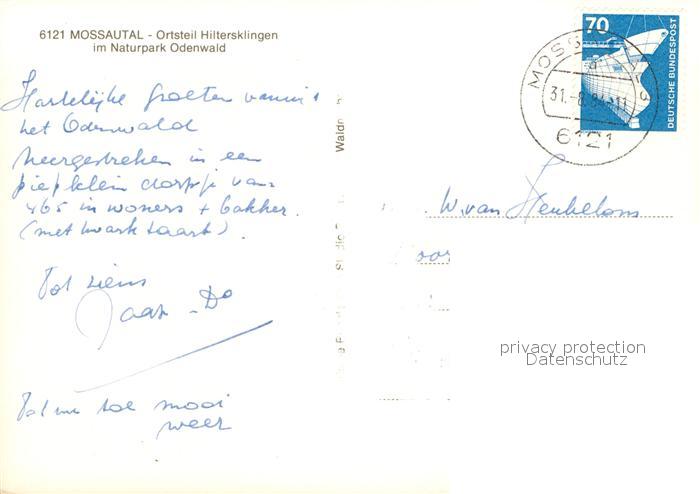 6121 MOSSAUTAL - Ortsteil Hiltersklingen
im Naturpark Odenwald
Hartelijke groeten vanuit
het Odenwald
neergestreken in een
piepklein dorpje van
465 inwoners + bakker.
(met kwarktaart).
Tot ziens
Jaap - Do
Tot nu toe mooi
weer
70
DEUTSCHE BUNDESPOST
MOSS
31.-8.84-11
6121
W. van Heukelom
privacy protection
Datenschutz